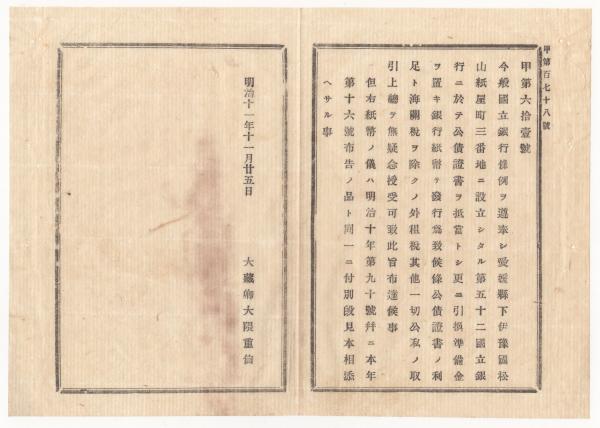 甲第百七十八號
甲第六拾壹號
今般國立銀行條例ヲ遵奉シ愛媛縣下伊豫國松
山紙屋町三番地ニ設立シタル第五十二國立銀
行ニ於テ公債證書ヲ抵當トシ更ニ引換準備金
ヲ置キ銀行紙幣ヲ發行爲致候條公債證書ノ利
足ト海關稅ヲ除クノ外租稅其他一切公私ノ取
引上總テ無疑念授受可致此旨布達候事
但右紙幣ノ儀ハ明治十年第九十號幷ニ本年
第十六號布告ノ品ト同一ニ付別段見本相添
ヘサル事
明治十一年十一月廿五日
大藏卿大隈重信